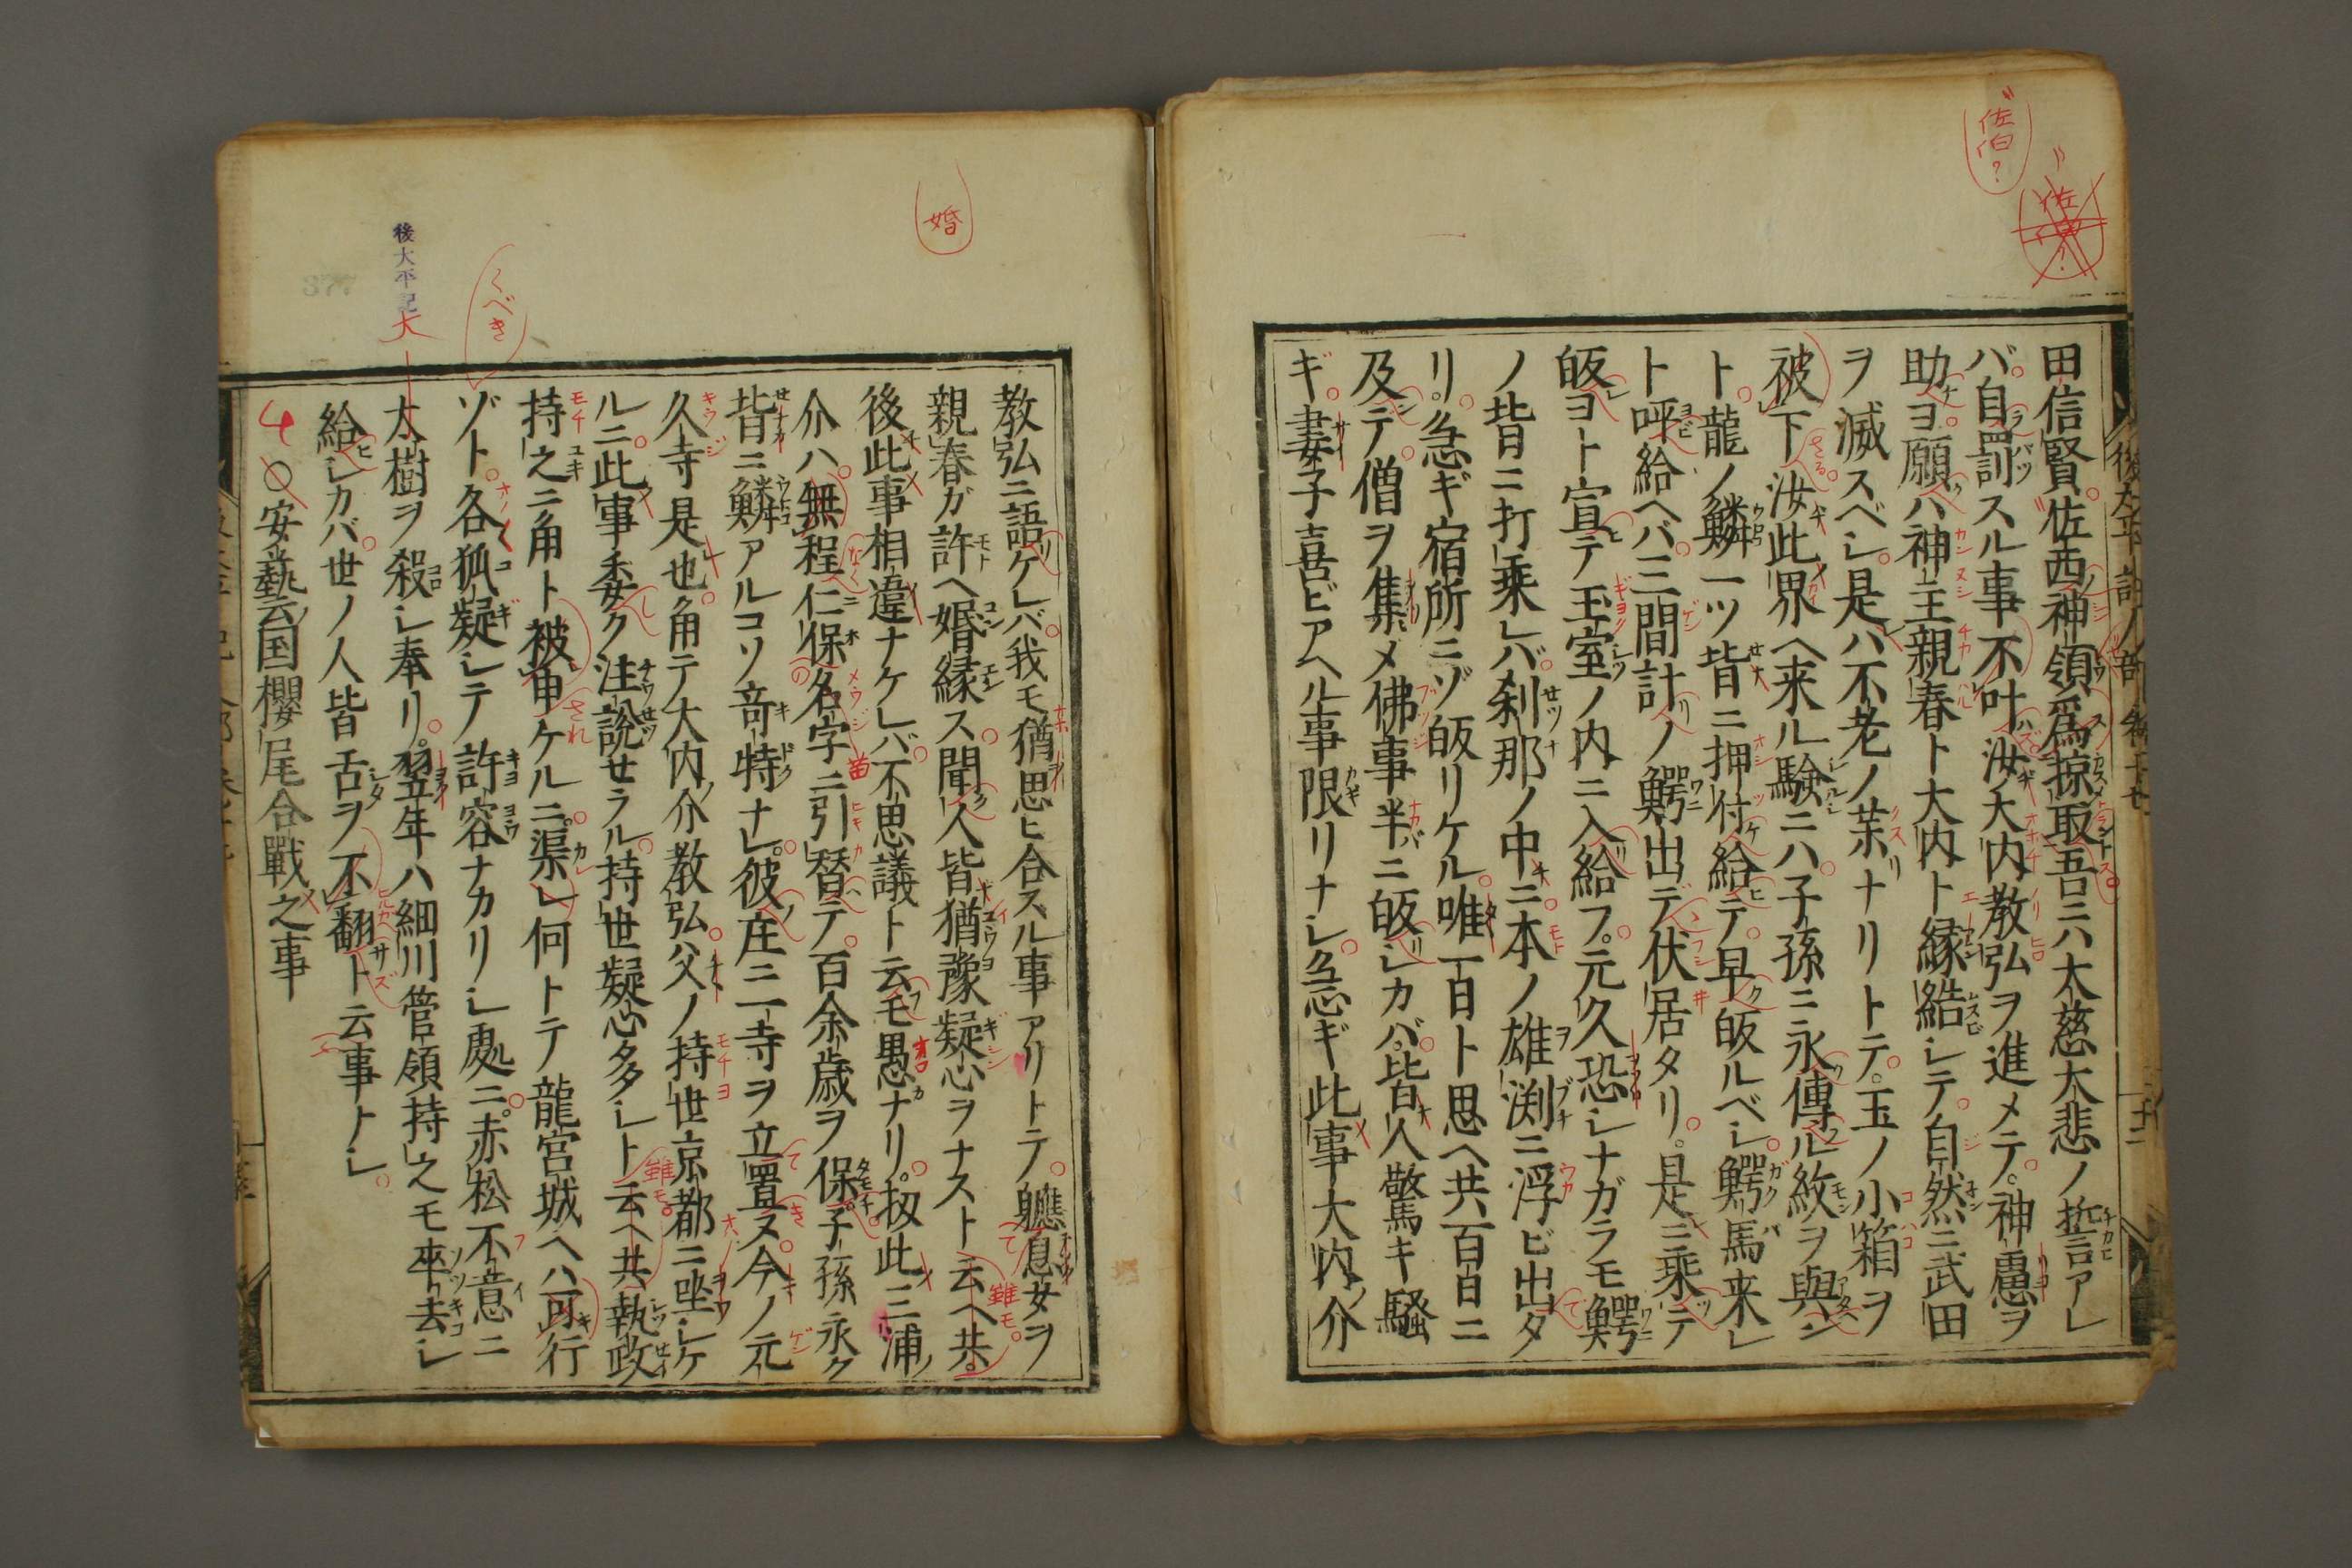 田信賢佐西神領爲掠取吾ニハ大慈大悲ノ誓アレ
バ自罰スル事不叶汝大内教弘ヲ進メテ神慮ヲ
助ヨ願ハ神主親春ト大内ト縁結シテ自然ニ武田
ヲ滅スベシ是ハ不老ノ薬ナリトテ玉ノ小箱ヲ
被下汝此界ヘ来ル験ニハ子孫ニ永傳ル紋ヲ與ン
ト龍ノ鱗一ツ背ニ押付給テ早皈ルベシ鰐馬来レ
ト呼給ヘバ三間計ノ鰐出デ伏居タリ是ニ乗テ
皈ヨト宣テ玉室ノ内ニ入給フ元久恐シナガラモ鰐
ノ背ニ打乗レバ刹那ノ中ニ本ノ雄渕ニ浮ビ出タ
リ急ギ宿所ニゾ皈リケル唯一日ト思ヘ共百日ニ
及テ僧ヲ集メ佛事半ニ皈シカバ皆人驚キ騒
ギ妻子喜ビアヘル事限リナシ急ギ此事大内介
教弘ニ語ケレバ我モ猶思ヒ合スル事アリトテ軈息女ヲ
親春ガ許ヘ婚縁ス聞人皆猶豫疑心ヲナスト云ヘ共
後此事相違ナケレバ不思議ト云モ愚ナリ扨此三浦ノ
介ハ無程仁保名字ニ引替テ百余歳ヲ保子孫永ク
背ニ鱗アルコソ竒特ナレ彼庄ニ一寺ヲ立置ヌ今ノ元
久寺是也角テ大内介教弘父ノ持世京都ニ坐シケ
ルニ此事委ク注説セラル持世疑心多シト云ヘ共執政
持之ニ角ト被申ケルニ渠レ何トテ龍宮城ヘハ可行
ゾト各狐疑シテ許容ナカリシ處ニ赤松不意ニ
大樹ヲ殺シ奉リ翌年ハ細川管領持之モ卒去シ
給シカバ世ノ人皆舌ヲ不翻ト云事ナシ
○安藝国櫻尾合戰之事
後太平記
佐伯?
婚
くべき
後大平記
377